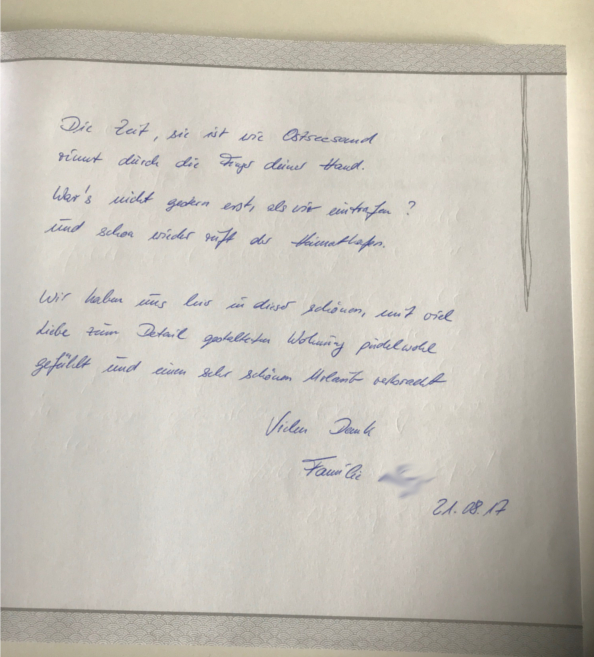 Die Zeit, sie ist wie Ostseesand
rinnt durch die Finger deiner Hand.
War's nicht gestern erst, als wir eintrafen?
und schon wieder ruft der Heimathafen.
Wir haben uns hier in dieser schönen, mit viel
Liebe zum Detail gestalteten Wohnung pudelwohl
gefühlt und einen sehr schönen Urlaub verbracht
Vielen Dank
Familie
21.08.17